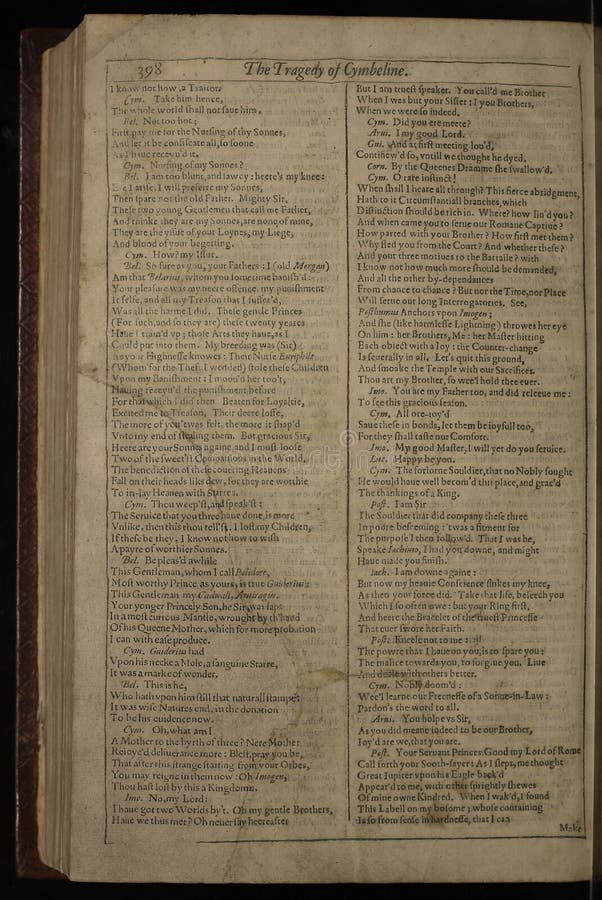 398
The Tragedy of Cymbeline.
I know not how, a Traitor.
Cym. Take him hence,
The whole world shall not saue him.
Bel. Not too hot;
First pay me for the Nursing of thy Sonnes,
And let it be confiscate all, so soone
As I haue receyu'd it.
Cym. Nursing of my Sonnes?
Bel. I am too blunt, and sawcy: heere's my knee:
Ere I arise, I will preferre my Sonnes,
Then spare not the old Father. Mighty Sir,
These two young Gentlemen that call me Father,
And thinke they are my Sonnes, are none of mine,
They are the yssue of your Loynes, my Liege,
And blood of your begetting.
Cym. How? my Issue.
Bel. So sure as you, your Fathers: I (old Morgan)
Am that Belarius, whom you sometime banish'd:
Your pleasure was my neere offence, my punishment
It selfe, and all my Treason that I suffer'd,
Was all the harme I did. These gentle Princes
(For such, and so they are) these twenty yeares
Haue I train'd vp; those Arts they haue, as I
Could put into them. My breeding was (Sir)
As your Highnesse knowes: Their Nurse Euriphile
(Whom for the Theft I wedded) stole these Children
Vpon my Banishment: I moou'd her too't,
Hauing receyu'd the punishment before
For that which I did then. Beaten for Loyaltie,
Excited me to Treason. Their deere losse,
The more of you 'twas felt, the more it shap'd
Vnto my end of stealing them. But gracious Sir,
Heere are your Sonnes againe, and I must loose
Two of the sweet'st Companions in the World.
The benediction of these couering Heauens
Fall on their heads like dew, for they are worthie
To in-lay Heauen with Starres.
Cym. Thou weep'st, and speak'st:
The Seruice that you three haue done, is more
Vnlike, then this thou tell'st. I lost my Children,
If these be they, I know not how to wish
A payre of worthier Sonnes.
Bel. Be pleas'd awhile
This Gentleman, whom I call Polidore,
Most worthy Prince, as yours, is true Guiderius:
This Gentleman, my Cadwall, Aruiragus.
Your yonger Princely Son, he Sir, was lapt
In a most curious Mantle, wrought by th'hand
Of his Queene Mother, which for more probation
I can with ease produce.
Cym. Guiderius had
Vpon his necke a Mole, a sanguine Starre,
It was a marke of wonder.
Bel. This is he,
Who hath vpon him still that naturall stampe:
It was wise Natures end, in the donation
To be his euidence now.
Cym. Oh, what am I
A Mother to the byrth of three? Nere Mother
Reioyc'd deliuerance more: Blest, pray you be,
That after this strange starting from your Orbes,
You may reigne in them now: Oh Imogen,
Thou hast lost by this a Kingdome.
Imo. No, my Lord:
I haue got two Worlds by't. Oh my gentle Brothers,
Haue we thus met? Oh neuer say heereafter
But I am truest speaker. You call'd me Brother
When I was but your Sister: I you Brothers,
When we were so indeed.
Cym. Did you ere meete?
Arui. I my good Lord.
Gui. And at first meeting lou'd,
Continew'd so, vntill we thought he dyed.
Corn. By the Queenes Dramme she swallow'd.
Cym. O rare instinct!
When shall I heare all through? This fierce abridgment,
Hath to it Circumstantiall branches, which
Distinction should be rich in. Where? how liu'd you?
And when came you to serue our Romane Captiue?
How parted with your Brother? How first met them?
Why fled you from the Court? And whether these?
And your three motiues to the Battaile? with
I know not how much more should be demanded,
And all the other by-dependances
From chance to chance? But nor the Time, nor Place
Will serue our long Interrogatories. See,
Posthumus Anchors vpon Imogen;
And she (like harmlesse Lightning) throwes her eye
On him: her Brothers, Me: her Master hitting
Each obiect with a Ioy: the Counter-change
Is seuerally in all. Let's quit this ground,
And smoake the Temple with our Sacrifices.
Thou art my Brother, so wee'l hold thee euer.
Imo. You are my Father too, and did releeue me:
To see this gracious season.
Cym. All ore-ioy'd
Saue these in bonds, let them be ioyfull too,
For they shall taste our Comfort.
Imo. My good Master, I will yet do you seruice.
Luc. Happy be you.
Cym. The forlorne Souldier, that no Nobly fought
He would haue well becom'd this place, and grac'd
The thankings of a King.
Post. I am Sir
The Souldier that did company these three
In poore beseeming: 'twas a fitment for
The purpose I then follow'd. That I was he,
Speake Iachimo, I had you downe, and might
Haue made you finish.
Iach. I am downe againe:
But now my heauie Conscience sinkes my knee,
As then your force did. Take that life, beseech you
Which I so often owe: but your Ring first,
And heere the Bracelet of the truest Princesse
That euer swore her Faith.
Post. Kneele not to me:
The powre that I haue on you, is to spare you:
The malice towards you, to forgiue you. Liue
And deale with others better.
Cym. Nobly doom'd:
Wee'l learne our Freenesse of a Sonne-in-Law:
Pardon's the word to all.
Arui. You holpe vs Sir,
As you did meane indeed to be our Brother,
Ioy'd are we, that you are.
Post. Your Seruant Princes. Good my Lord of Rome
Call forth your Sooth-sayer: As I slept, me thought
Great Iupiter vpon his Eagle back'd
Appear'd to me, with other sprightly shewes
Of mine owne Kindred. When I wak'd, I found
This Label on my bosome; whose containing
Is so from sense in hardnesse, that I can
Make